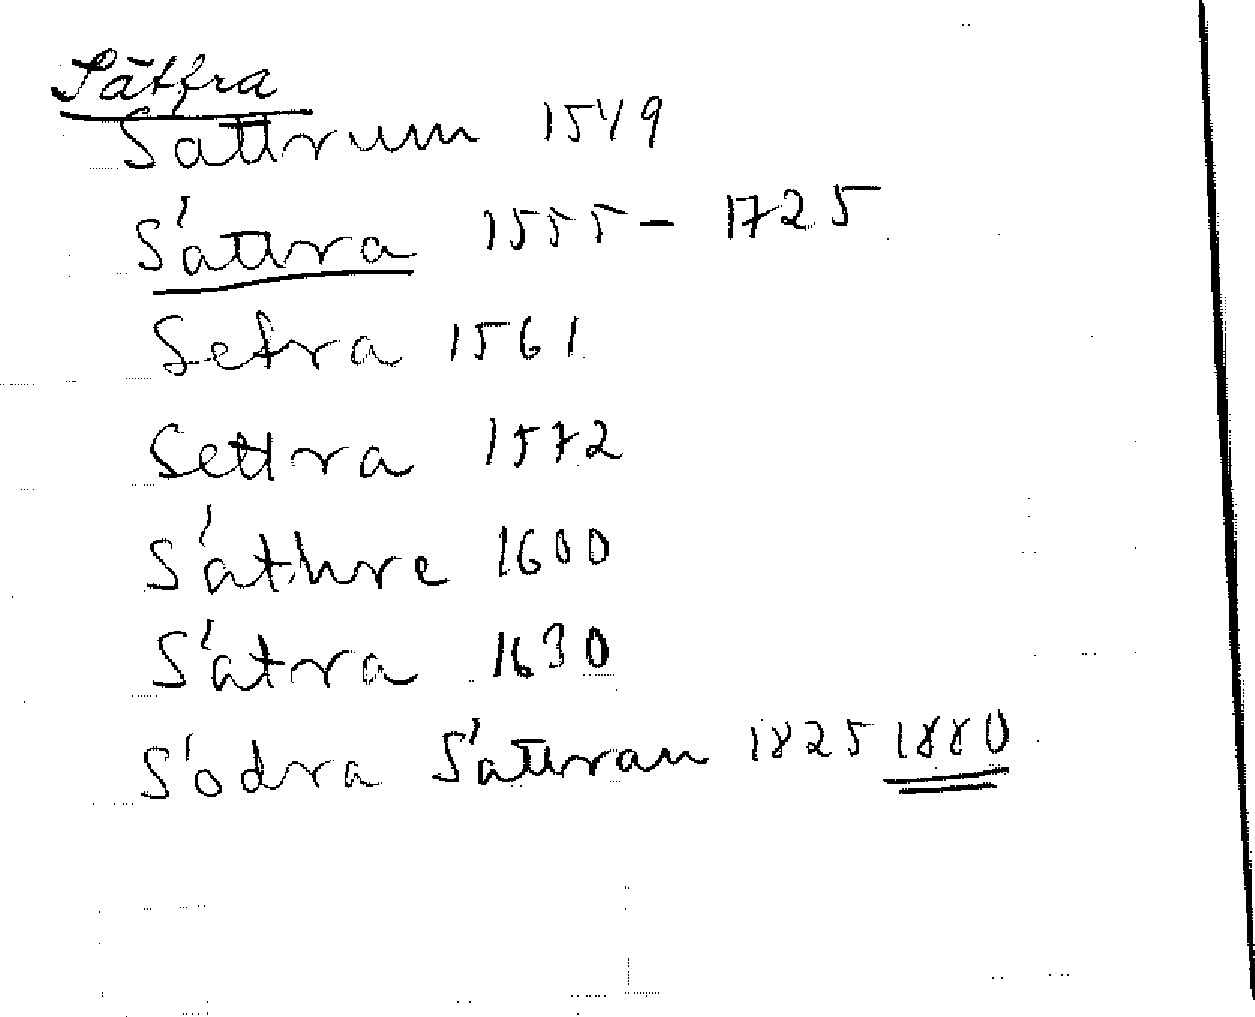 Sätra
Sattrum 1549
Sättra 1555 - 1725
Setra 1561
Settra 1572
Säthre 1600
Sätra 1630
Södra Sättran 1825 1880